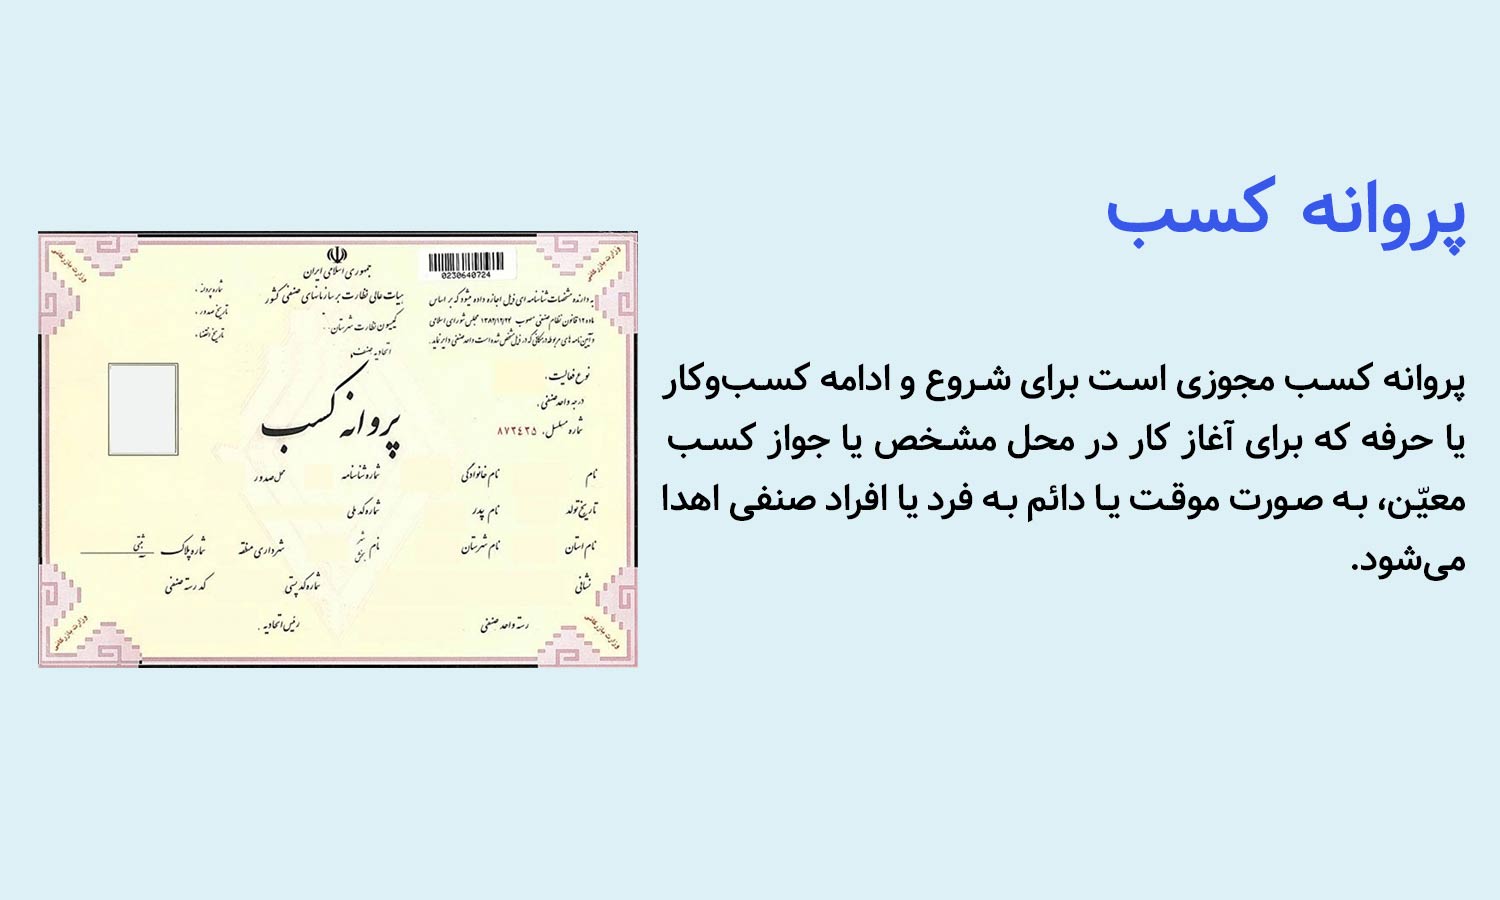 پروانه کسب
پروانه کسب مجوزی است برای شروع و ادامه کسب‌وکار
یا حرفه که برای آغاز کار در محل مشخص یا جواز کسب
معیّن، به صورت موقت یا دائم به فرد یا افراد صنفی اهدا
می‌شود.
جمهوری اسلامی ایران
هیات عالی نظارت بر سازمانهای صنفی کشور
کمیسیون نظارت شهرستان
اتحادیه صنف
0230640724
به دارنده مشخصات شناسنامه ای ذیل اجازه داده میشود که بر اساس
ماده ۱۲ قانون نظام صنفی مصوب ۱۳۸۲/۱۲/۲۴ مجلس شورای اسلامی
و آیین نامه های مربوطه در مکانی که در ذیل مشخص شده است واحد صنفی دایر نماید.
شماره پروانه :
تاریخ صدور :
تاریخ انقضاء :
نوع فعالیت :
درجه واحد صنفی :
شماره مسلسل : ۸۷۳٤۳۵
پروانه کسب
نام نام خانوادگی شماره شناسنامه محل صدور
تاریخ تولد نام پدر شماره کد ملی
نام استان نام شهرستان نام شهر بخش شهرداری منطقه شماره پلاک ثبتی
نشانی شماره کد پستی کد رسته صنفی
رسته واحد صنفی رئیس اتحادیه :
وزارت بازرگانی
وزارت بازرگانی
وزارت بازرگانی
وزارت بازرگانی